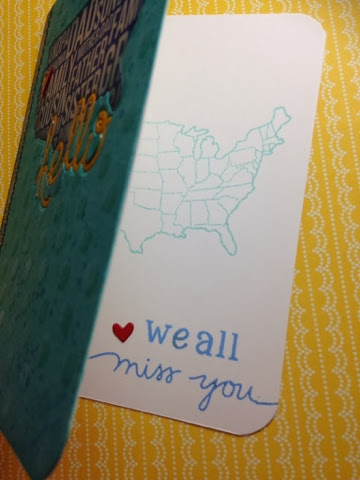 hello
we all
miss you